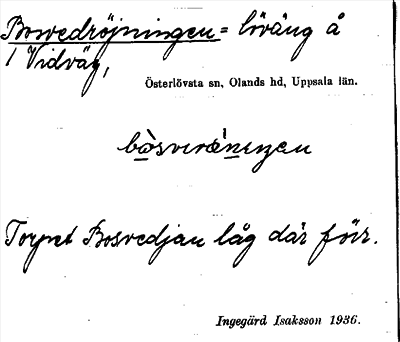 Bosvedröjningen = löväng å
/ Vidväg,
Österlövsta sn, Olands hd, Uppsala län.
Torpet Bosvedjan låg där förr.
Ingegärd Isaksson 1936.